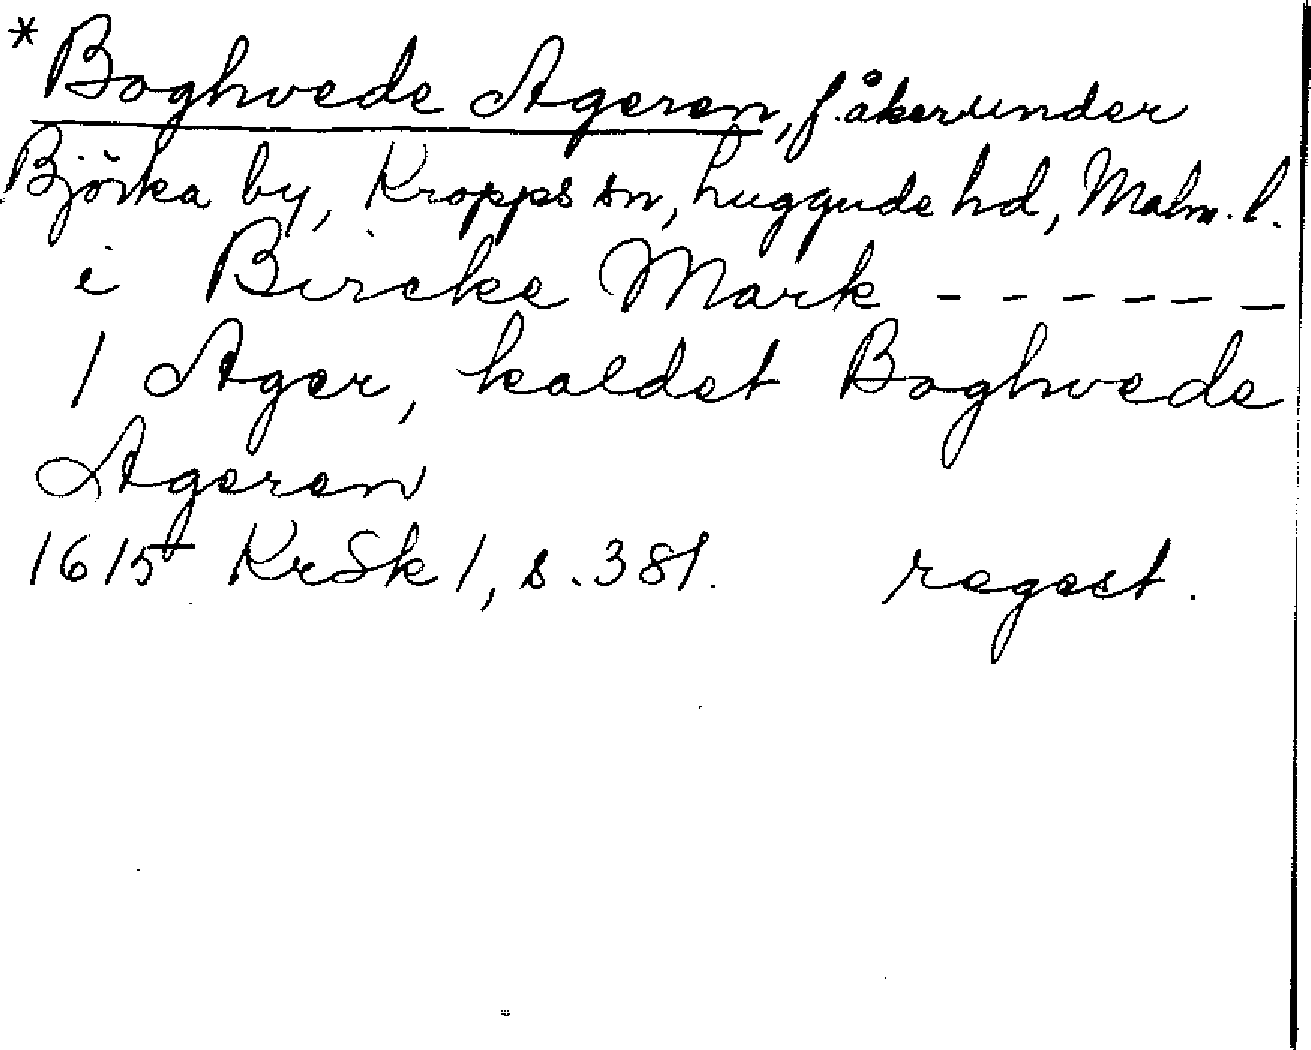 *Boghvede Ageren, f. åker under
Björka by, Kropps sn, Luggude hd, Malm. l.
i Bircke Mark - - - - - -
1 Ager, kaldet Boghvede
Ageren
1615 KrSk 1, s. 381. regest.